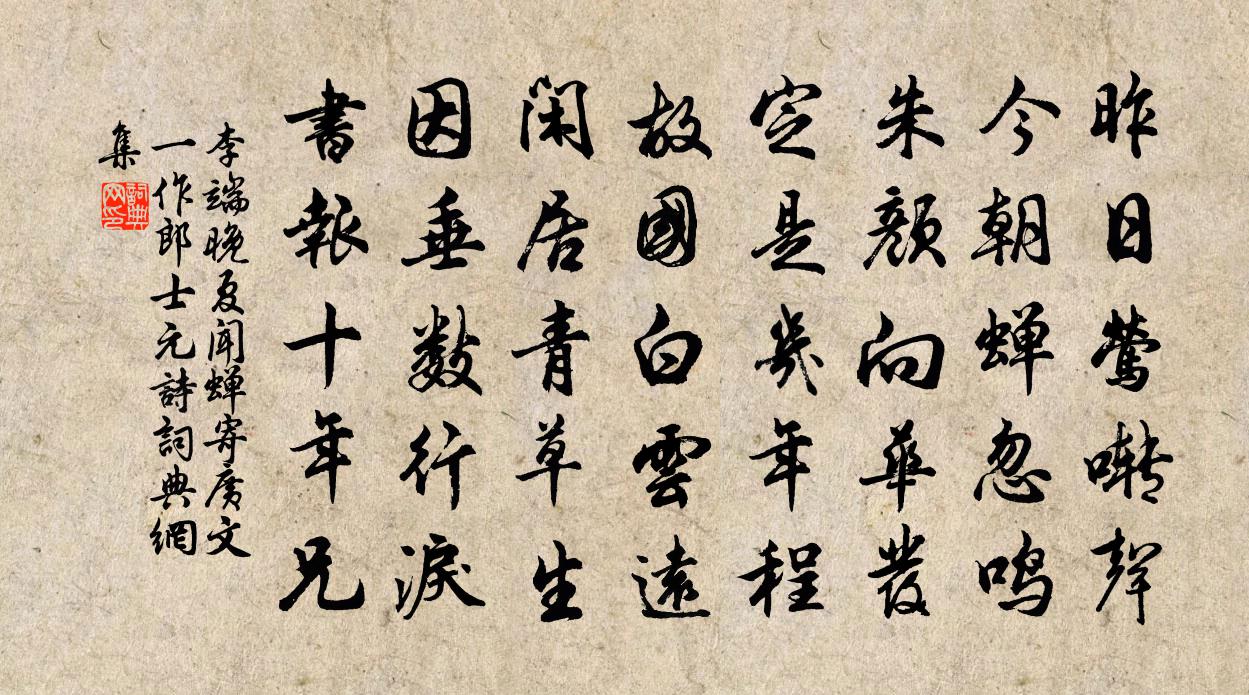 昨日鶯囀聲
今朝蝉忽鳴
朱顔向華發
定是幾年程
故國白雲遠
閑居青草生
因垂數行淚
書報十年兄
李端晚夏聞蝉寄廣文
一作郎士元詩詞典網
集
詞典
网印